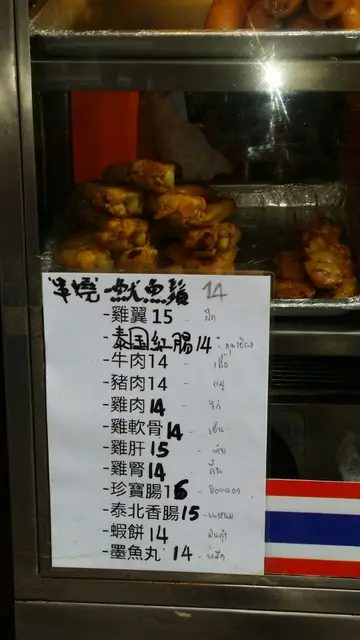 串燒 魷魚鬚 14
-雞翼 15 - ปีก
-泰国紅腸 14
-牛肉 14 - เนื้อ
-豬肉 14 - หมู
-雞肉 14 - ไก่
-雞軟骨 14 - เอ็น
-雞肝 15 - ตับ
-雞腎 14 - กึ๋น
-珍寶腸 16
-泰北香腸 15
-蝦餅 14
-墨魚丸 14